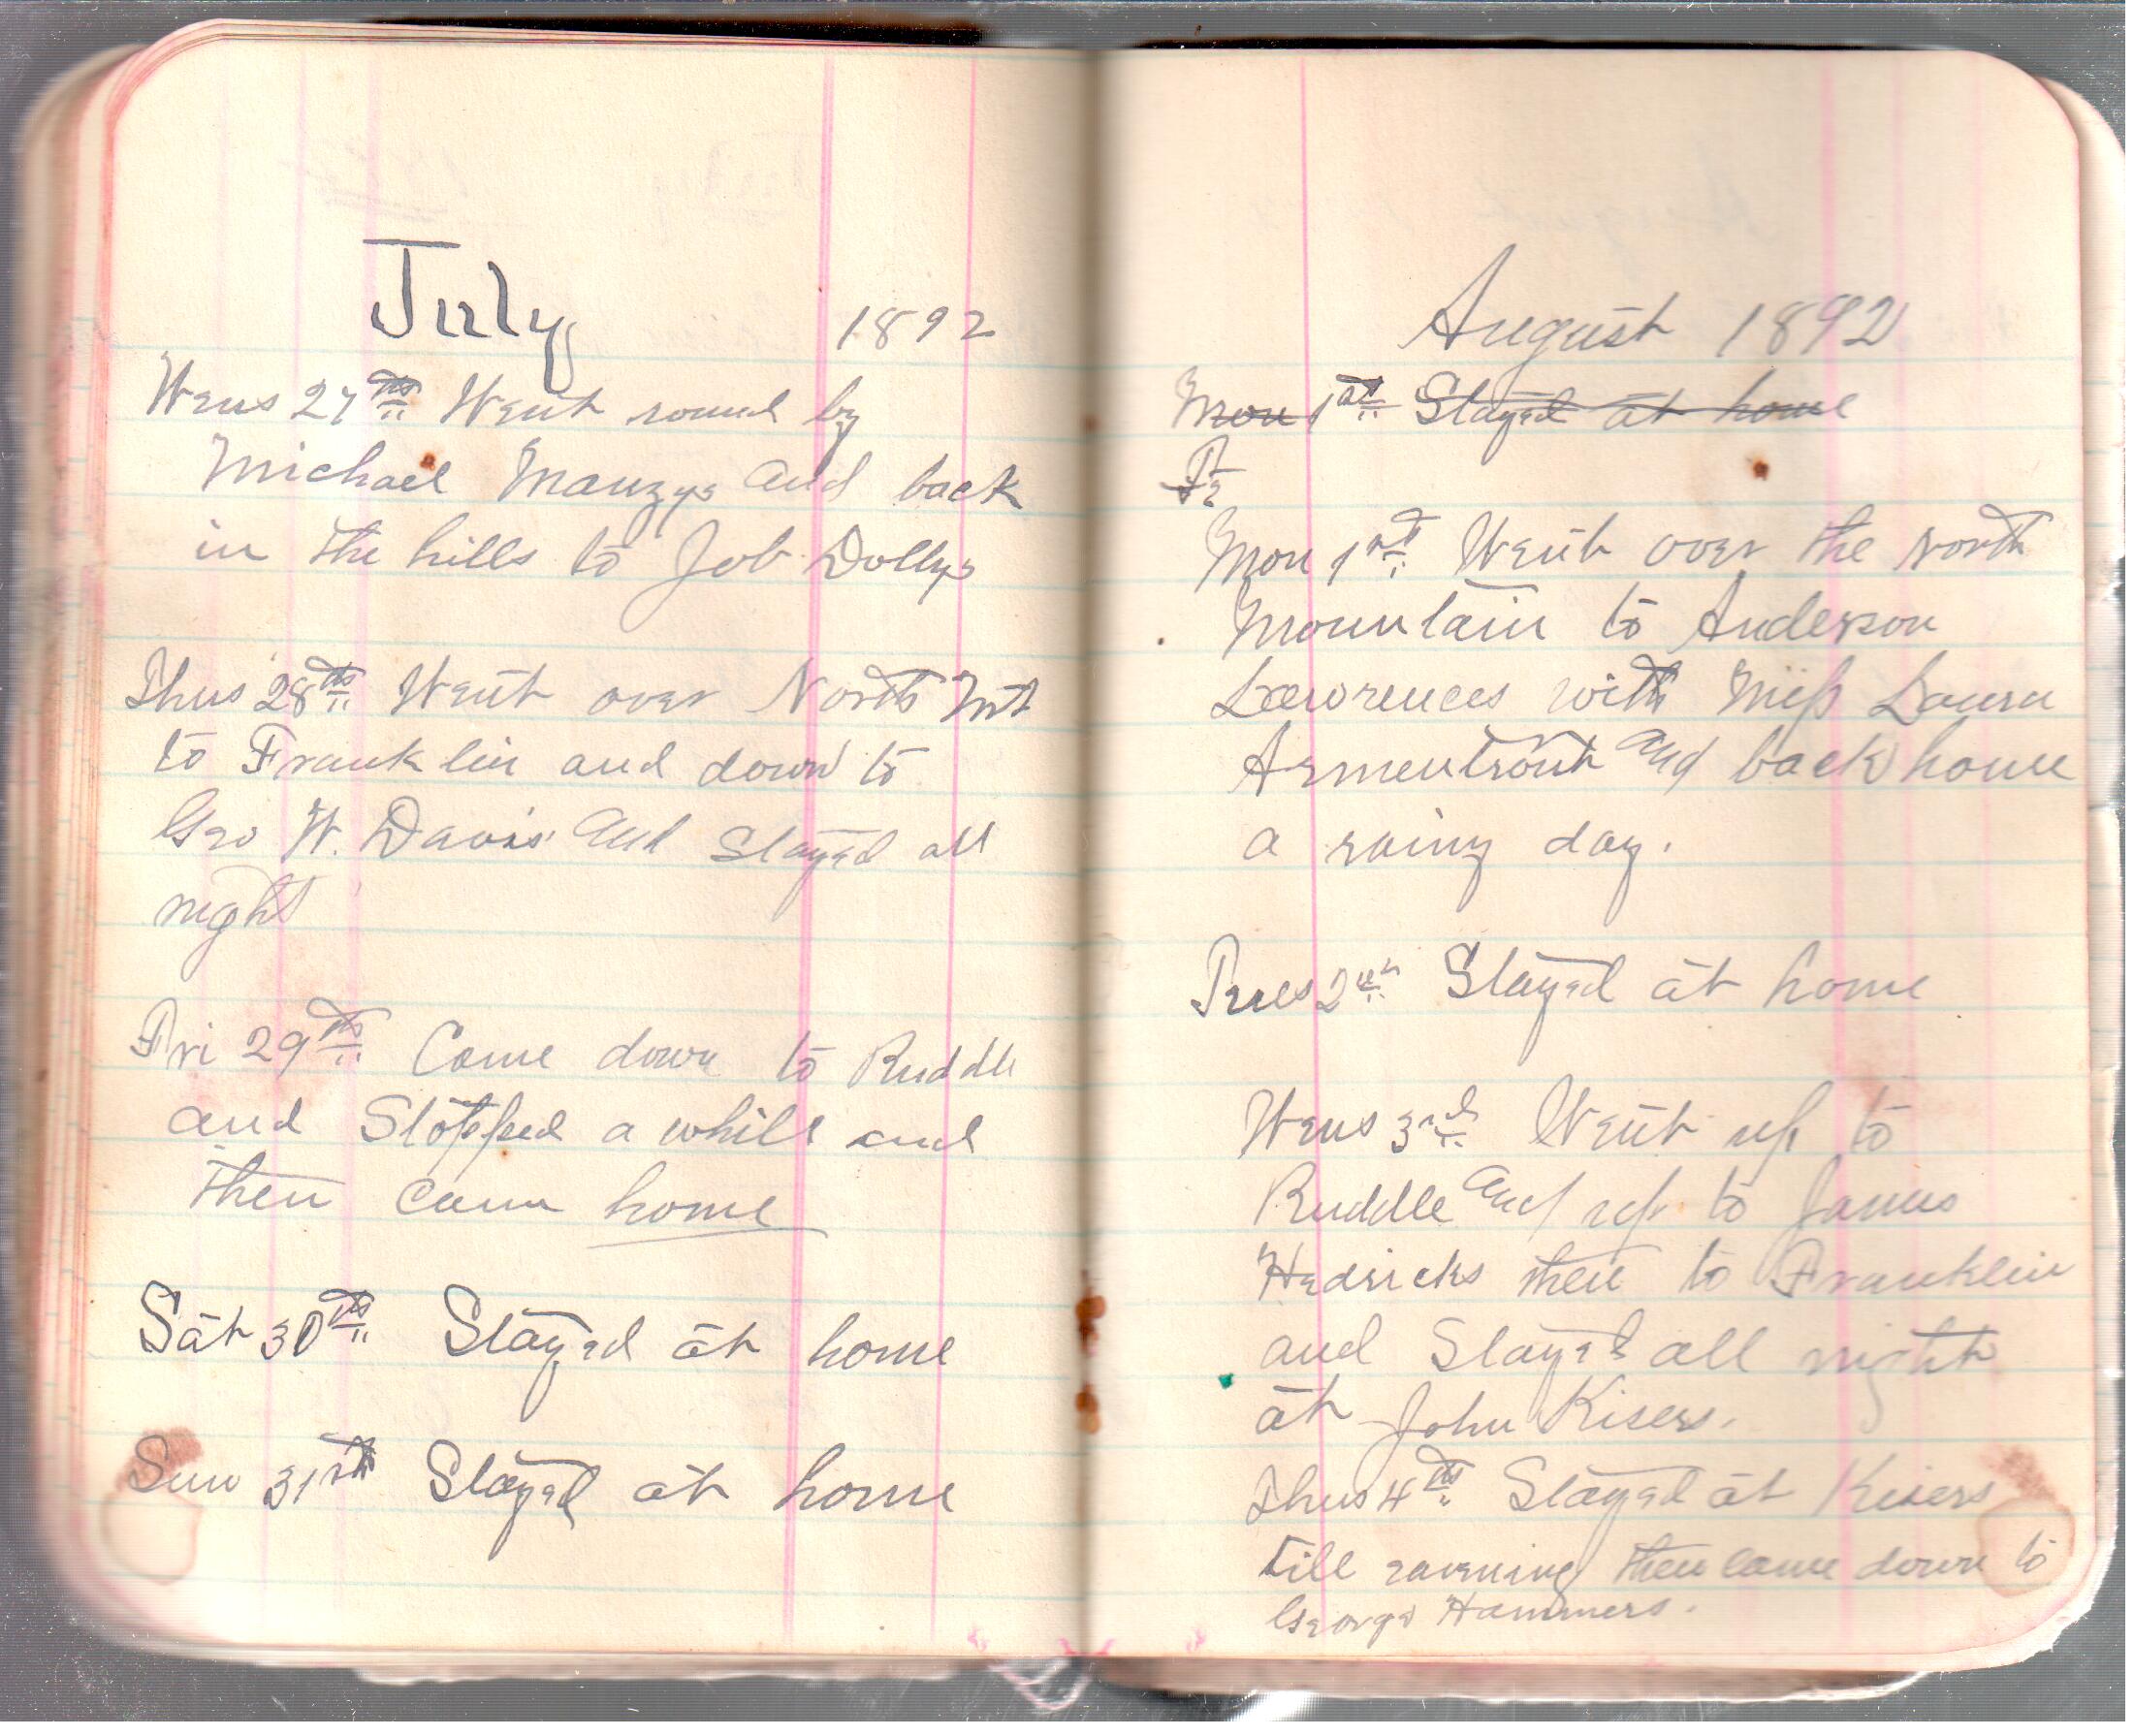 July 1892
Wens 27th Went round by
Michael Mauzys and back
in the hills to Job Dollys
Thus 28th Went over North Mt
to Franklin and down to
Geo W. Davis and Stayed all
night
Fri 29th Came down to Ruddle
and Stopped a while and
then came home
Sat 30th Stayed at home
Sun 31st Stayed at home
August 1892
Mon 1st Stayed at home
Mon 1st Went over the North
Mountain to Anderson
Lawrences with Miss Laura
Armentrout and back home
a rainy day.
Tues 2nd Stayed at home
Wens 3rd Went up to
Ruddle and up to James
Hedricks then to Franklin
and Stayed all night
at John Kisers.
Thus 4th Stayed at Kisers
till evening then came down to
George Hammers.